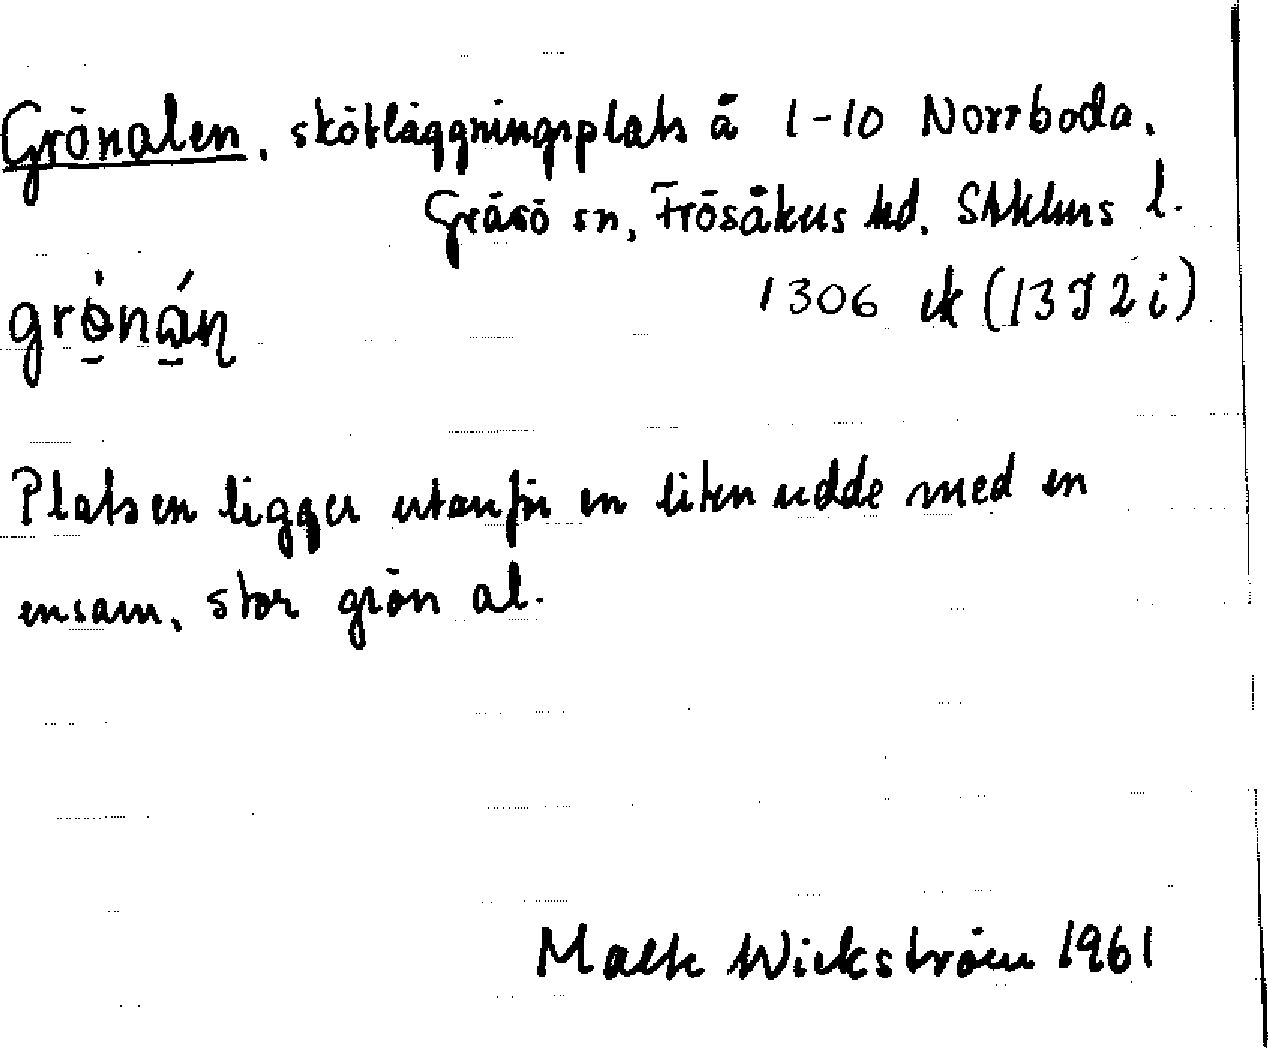 Grönalen, skötläggningsplats å 1-10 Norrboda,
Gräsö sn, Frösåkers hd. Sthlms l.
1306 ek (13I2i)
grönán
Platsen ligger utanför en liten udde med en
ensam, stor grön al.
Malte Wickström 1961